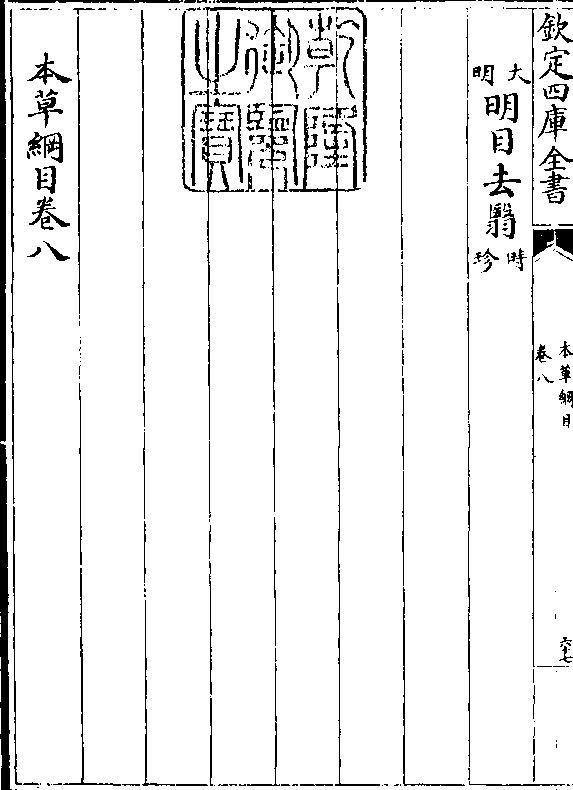 欽定四庫全書
本草綱目
卷八
六十七
大明明目去翳時珍
乾隆御覽之寶
本草綱目卷八